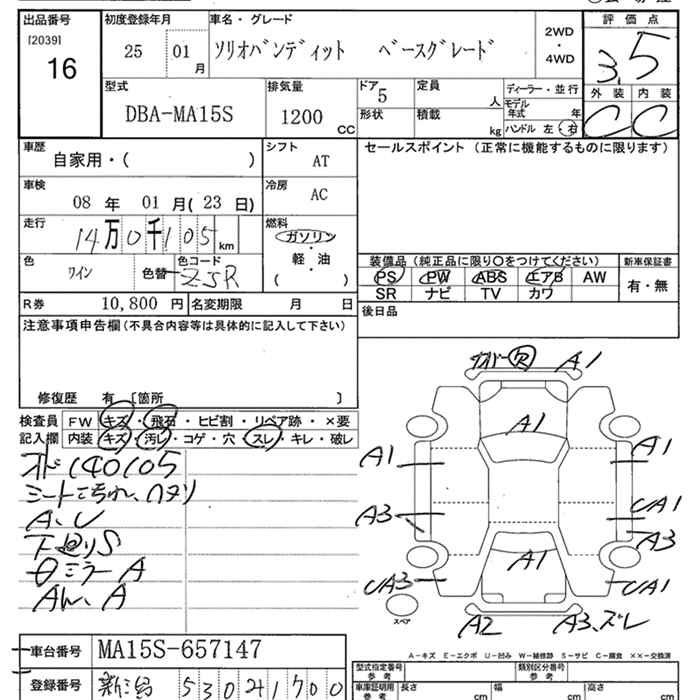 出品番号 初度登録年月 車名・グレード 評価点
[2039] 16 25 01 月 ソリオバンディット ベースグレード 2WD・4WD 3.5
外装 内装
C C
型式 排気量 ドア 定員 ディーラー・並行
DBA-MA15S 1200 CC 5 人 モデル年式 年
形状 積載 kg ハンドル 左・右
車歴 シフト セールスポイント (正常に機能するものに限ります)
自家用・( ) AT
車検 冷房
08 年 01 月( 23 日) AC
走行 燃料
14万0千105 km ガソリン・軽・油 ( )
色 色コード 装備品 (純正品に限り〇をつけてください) 新車保証書
ワイン 色替 ZJR PS PW ABS エアB AW 有・無
SR ナビ TV カワ
R券 10,800 円 名変期限 月 日 後日品
注意事項申告欄 (不具合内容等は具体的に記入して下さい)
修復歴 有 [箇所 ]
検査員 FW キズ・飛石・ヒビ割・リペア跡・×要
記入欄 内装 キズ・汚レ・コゲ・穴・スレ・キレ・破レ
140105
シートよごれ、ヘタリ
A、U
下廻りS
ミラー A
A
欠 A1
A1
A1 A1
UA1
A3 A3
A1
UA3 UA1
スペア
A2 A3、ズレ
A-キズ E-エクボ U-凹み W-補修跡 S-サビ C-腐食 ××-交換済
車台番号 MA15S-657147
登録番号 新潟 530 1700
型式指定番号 参考 類別区分番号 参考
車庫証明用 参考 長さ cm 幅 cm 高さ cm